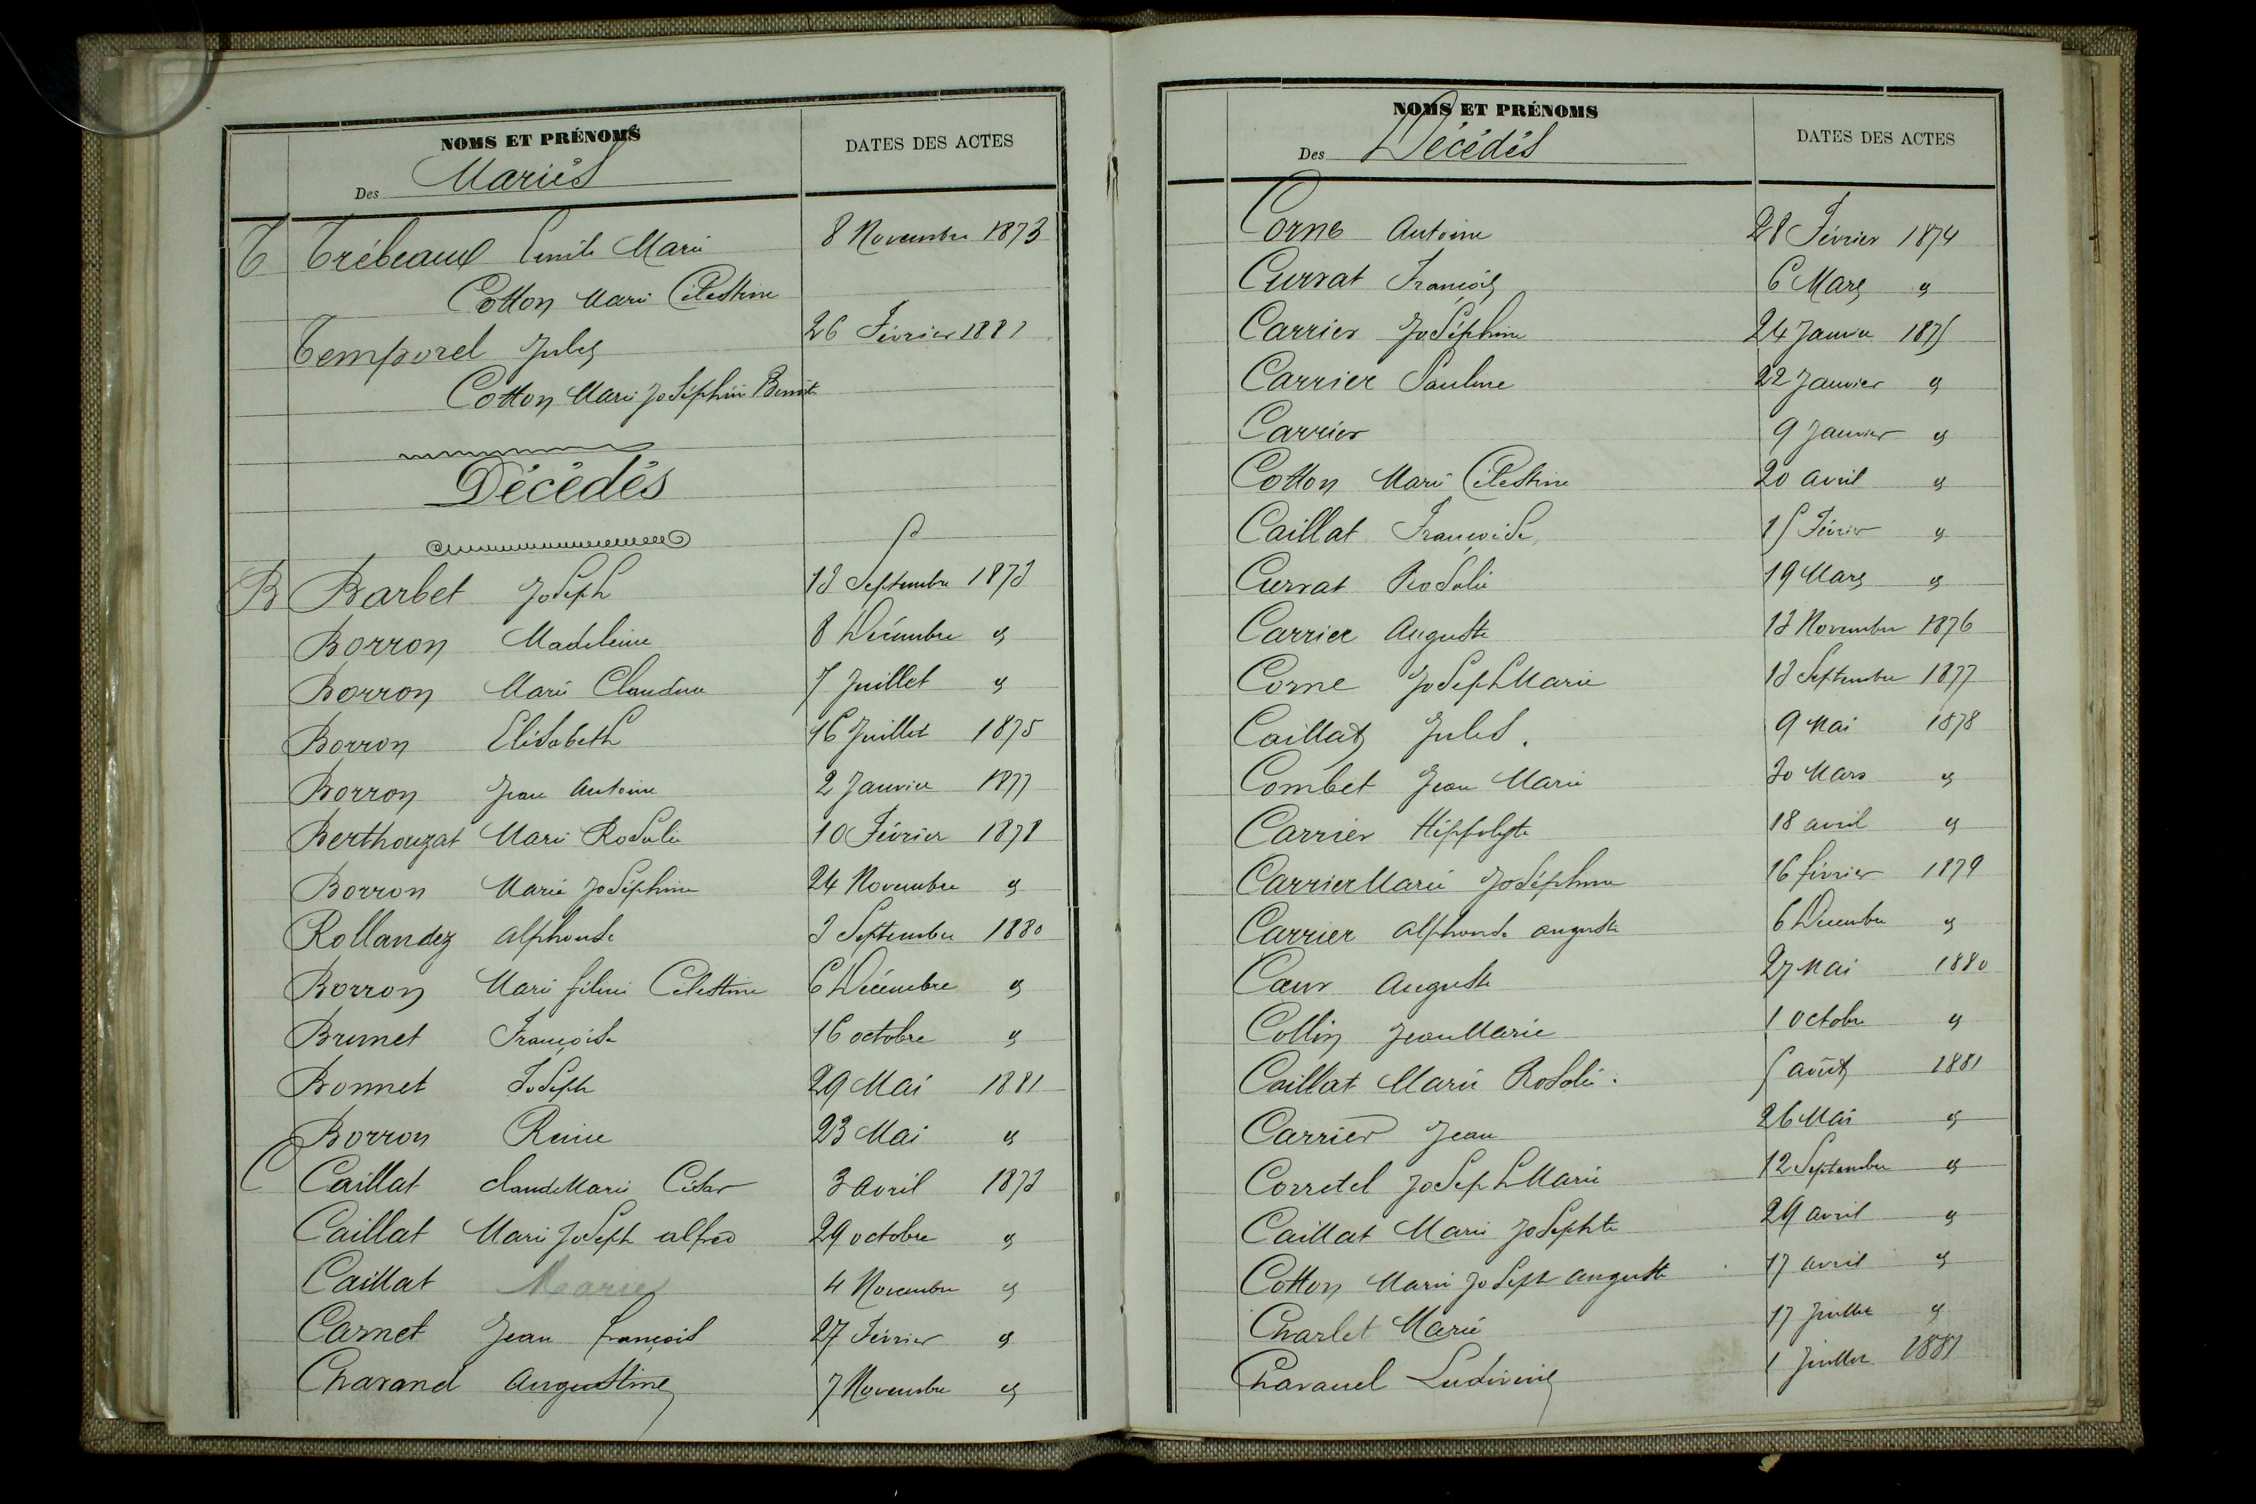 NOMS ET PRÉNOMS
DATES DES ACTES
Des Mariés
T Trébeaux Emile Marie 8 Novembre 1873
Cotton Marie Célestine
Temporel Jules 26 Février 1881
Cotton Marie Joséphine Benoite
Décédés
B Barbet Joseph 13 Septembre 1873
Borron Madeleine 8 Décembre "
Borron Marie Claudine 7 Juillet "
Borron Elisabeth 16 Juillet 1875
Borron Jean Antoine 2 Janvier 1877
Berthouzat Marie Rosalie 10 Février 1878
Borron Marie Joséphine 24 Novembre "
Rollandez Alphonse 3 Septembre 1880
Borron Marie Célestine 6 Décembre "
Brunet Françoise 16 octobre "
Bonnet Joseph 29 Mai 1881
Borron Reine 23 Mai "
C Caillat Claude Marie César 3 Avril 1873
Caillat Marie Joseph Alfred 29 octobre "
Caillat Marie 4 Novembre "
Carnet Jean François 27 Février "
Chavand Augustine 7 Novembre "
NOMS ET PRÉNOMS
DATES DES ACTES
Des Décédés
Corne Antoine 28 Février 1874
Currat François 6 Mars "
Carrier Joséphine 24 Janvier 1875
Carrier Pauline 22 Janvier "
Carrier 9 Janvier "
Cotton Marie Célestine 20 avril "
Caillat Françoise 15 Février "
Currat Rosalie 19 Mars "
Carrier Auguste 13 Novembre 1876
Corne Joseph Marie 13 Septembre 1877
Caillat Jules. 9 Mai 1878
Combet Jean Marie 30 Mars "
Carrier Hippolyte 18 avril "
Carrier Marie Joséphine 16 février 1879
Carrier Alphonse auguste 6 Décembre "
Cœur Auguste 27 Mai 1880
Collin Jean Marie 1 octobre "
Caillat Marie Rosalie. 5 août 1881
Carrier Jean 26 Mai "
Corretel Joseph Marie 12 Septembre "
Caillat Marie Josephte 29 avril "
Cotton Marie Joseph auguste 17 avril "
Charlet Marie 17 Juillet "
Chavanel Ludivine 1 Juillet 1881